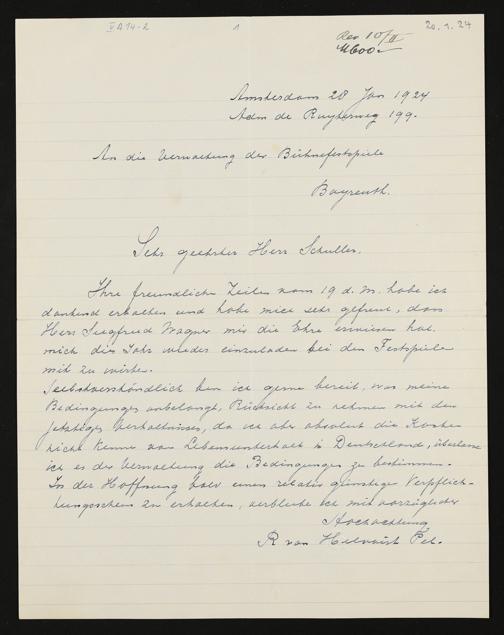 V A 14-2 1 20.1.24
Rev 10/II
M600.-
Amsterdam 28 Jan 1924
Adm de Ruyterweg 199.
An die Verwaltung der Bühnefestspiele
Bayreuth.
Sehr geehrter Herr Schuller.
Ihre freundliche Zeilen vom 19 d. M. habe ich
dankend erhalten und habe mich sehr gefreut, dass
Herr Siegfried Wagner mir die Ehre erwiesen hat
mich dies Jahr wieder einzuladen bei den Festspiele
mit zu wirken.
Selbstverständlich bin ich gerne bereit, was meine
Bedingungen anbelangt, Rücksicht zu nehmen mit den
jetztigen Verhältnisses, da ich aber absolut die Kosten
nicht kenne von Lebensunterhalt in Deutschland, überlasse
ich es der Verwaltung die Bedingungen zu bestimmen.
In der Hoffnung bald einen relativ günstige Verpflich-
tungsschein zu erhalten, verbleibe ich mit vorzüglicher
Hochachtung
R van Helvoirt Pel.